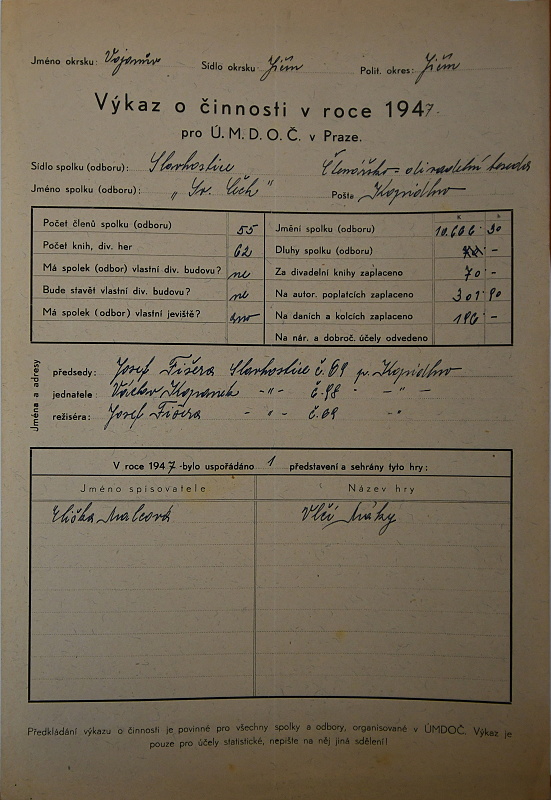 Jméno okrsku: Vojanův Sídlo okrsku Jičín Polit. okres: Jičín
Výkaz o činnosti v roce 1947.
pro Ú. M. D. O. Č. v Praze.
Sídlo spolku (odboru): Slavhostice Čtenářsko-divadelní beseda
Jméno spolku (odboru): „Sv. Čech" Pošta Kopidlno
Počet členů spolku (odboru) 55
Počet knih, div. her 62
Má spolek (odbor) vlastní div. budovu? ne
Bude stavět vlastní div. budovu? ne
Má spolek (odbor) vlastní jeviště? ano
K h
Jmění spolku (odboru) 10.606 30
Dluhy spolku (odboru) -
Za divadelní knihy zaplaceno 70 -
Na autor. poplatcích zaplaceno 301 90
Na daních a kolcích zaplaceno 196 -
Na nár. a dobroč. účely odvedeno
Jména a adresy
předsedy: Josef Fišera Slavhostice č. 69 p. Kopidlno
jednatele: Václav Kopanek -„- č. 98 -„-
režiséra: Josef Fišera -„- č. 69 -„-
V roce 1947 bylo uspořádáno 1 představení a sehrány tyto hry:
Jméno spisovatele Název hry
Eliška Malcová Vlčí Máky
Předkládání výkazu o činnosti je povinné pro všechny spolky a odbory, organisované v ÚMDOČ. Výkaz je
pouze pro účely statistické, nepište na něj jiná sdělení!